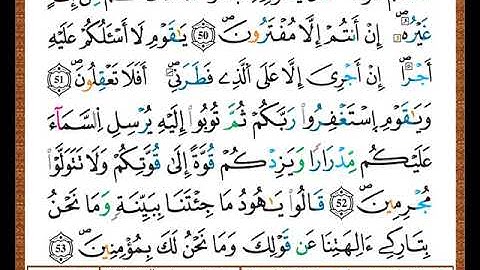 غَيْرُهُۥٓ إِنْ أَنتُمْ إِلَّا مُفْتَرُونَ 50 يَٰقَوْمِ لَا أَسْـَٔلُكُمْ عَلَيْهِ
أَجْرًا إِنْ أَجْرِيَ إِلَّا عَلَى ٱلَّذِے فَطَرَنِيٓ أَفَلَا تَعْقِلُونَ 51
وَيَٰقَوْمِ ٱسْتَغْفِرُوا۟ رَبَّكُمْ ثُمَّ تُوبُوٓا۟ إِلَيْهِ يُرْسِلِ ٱلسَّمَآءَ
عَلَيْكُم مِّدْرَارًا وَيَزِدْكُمْ قُوَّةً إِلَىٰ قُوَّتِكُمْ وَلَا تَتَوَلَّوْا۟
مُجْرِمِينَ 52 قَالُوا۟ يَٰهُودُ مَا جِئْتَنَا بِبَيِّنَةٍ وَمَا نَحْنُ
بِتَارِكِے ءَالِهَتِنَا عَن قَوْلِكَ وَمَا نَحْنُ لَكَ بِمُؤْمِنِينَ 53